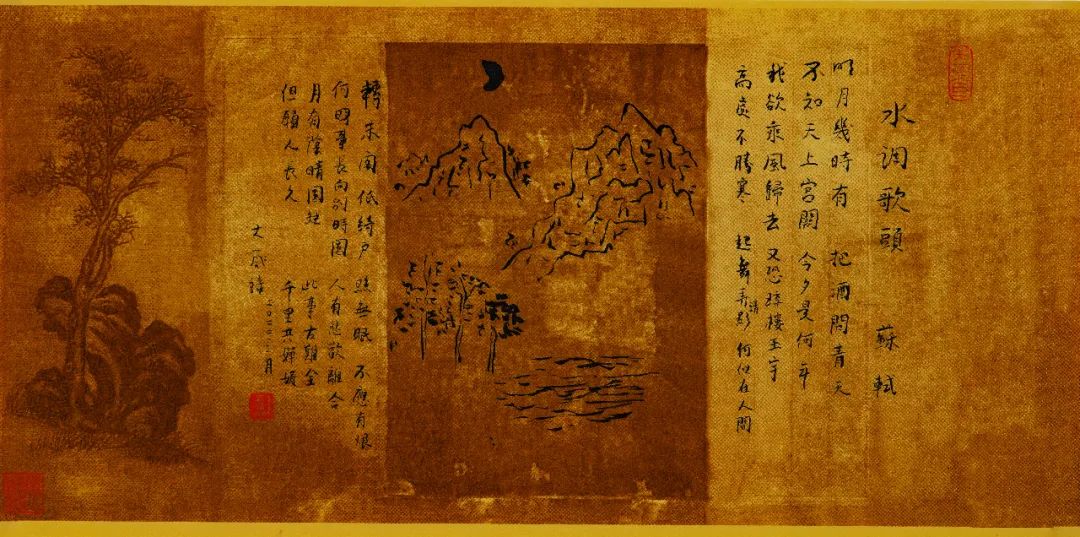 水调歌頭 蘇軾
明月幾時有 把酒問青天
不知天上宫闕 今夕是何年
我欲乘風歸去 又恐琼樓玉宇
高處不勝寒 起舞弄清影 何似在人間
轉朱閣 低綺户 照無眠 不應有恨
何事長向别時圆 人有悲欢離合
月有陰晴圆缺 此事古難全
但願人長久 千里共嬋娟